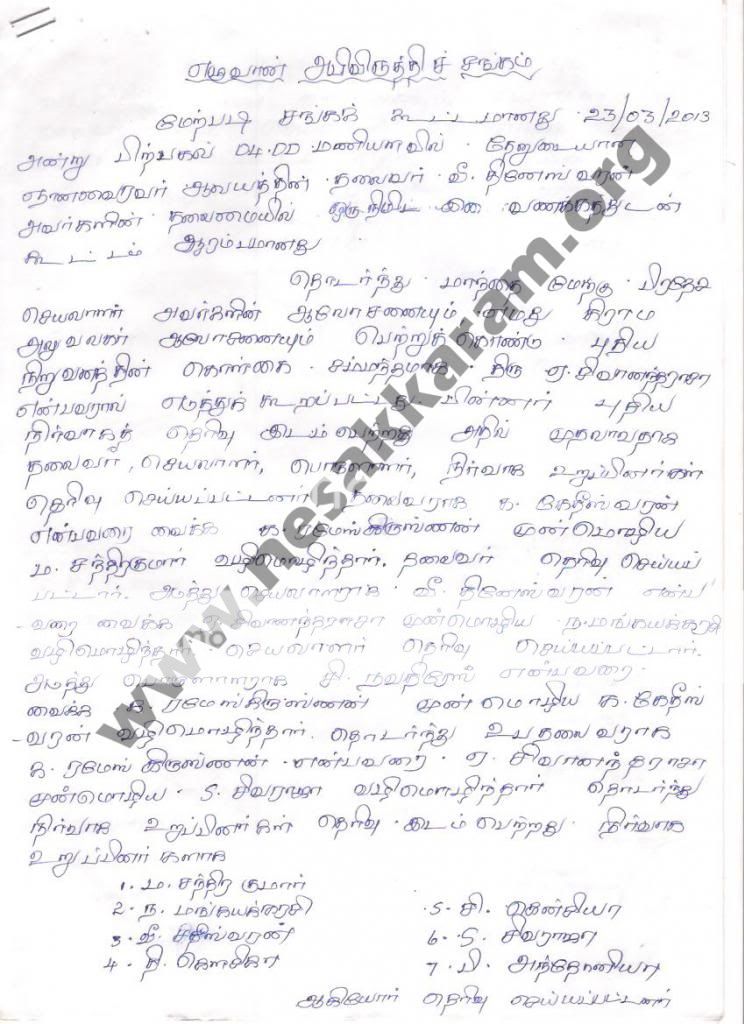 எழுவான் அபிவிருத்திச் சங்கம்
மேற்படி சங்கக் கூட்டமானது 23/03/2013
அன்று பிற்பகல் 04.00 மணியளவில் தேனுடையான்
ஞானவைரவர் ஆலயத்தின் தலைவர் வீ. தினேஸ்வரன்
அவர்களின் தலைமையில் ஒருநிமிட இறை வணக்கத்துடன்
கூட்டம் ஆரம்பமானது.
தொடர்ந்து மாந்தை மேற்கு பிரதேச
செயலாளர் அவர்களின் ஆலோசனையும் எமது கிராம
அலுவலகர் ஆலோசனையும் பெற்றுக்கொண்ட புதிய
நிறுவனத்தின் கொள்கை சம்மந்தமாக திரு ஏ. சிவானந்தராசா
என்பவரால் எடுத்துக் கூறப்பட்டது பின்னர் புதிய
நிர்வாகத் தெரிவு இடம் பெற்றது அதில் முதலாவதாக
தலைவர், செயலாளர், பொருளாளர், நிர்வாக உறுப்பினர்கள்
தெரிவு செய்யப்பட்டனர். தலைவராக க. கேதீஸ்வரன்
என்பவரை வைக்க க. ரமேஸ்கிருஸ்ணன் முன்மொழிய
ம. சந்திரகுமார் வழிமொழிந்தார். தலைவர் தெரிவு செய்யப்
பட்டார். அடுத்து செயலாளராக வீ. தினேஸ்வரன் என்ப
வரை வைக்க ஏ. சிவானந்தராசா முன்மொழிய ந. மங்கயக்கரசி
வழிமொழிந்தார் செயலாளர் தெரிவு செய்யப்பட்டார்.
அடுத்து பொருளாளராக சி. நவநிரோஸ் என்பவரை
வைக்க க. ரமேஸ்கிருஸ்ணன் முன் மொழிய க. கேதீஸ்
- வரன் வழிமொழிந்தார். தொடர்ந்து உபதலைவராக
க. ரமேஸ் கிருஸ்ணன் என்பவரை ஏ. சிவானந்தராசா
முன்மொழிய S. சிவராஜா வழிமொழிந்தார் தொடர்ந்து
நிர்வாக உறுப்பினர்கள் தெரிவு இடம் பெற்றது நிர்வாக
உறுப்பினர்களாக
1. ம. சந்திர குமார்
2. ந. மங்கயக்கரசி
3. வீ. சதீஸ்வரன்
4. தி. கௌசிகா
5. சி. தென்சியா
6. S. சிவராஜா
7. பி. அந்தோனியா
ஆகியோர் தெரிவு செய்யப்பட்டனர்
www.nesakkaram.org